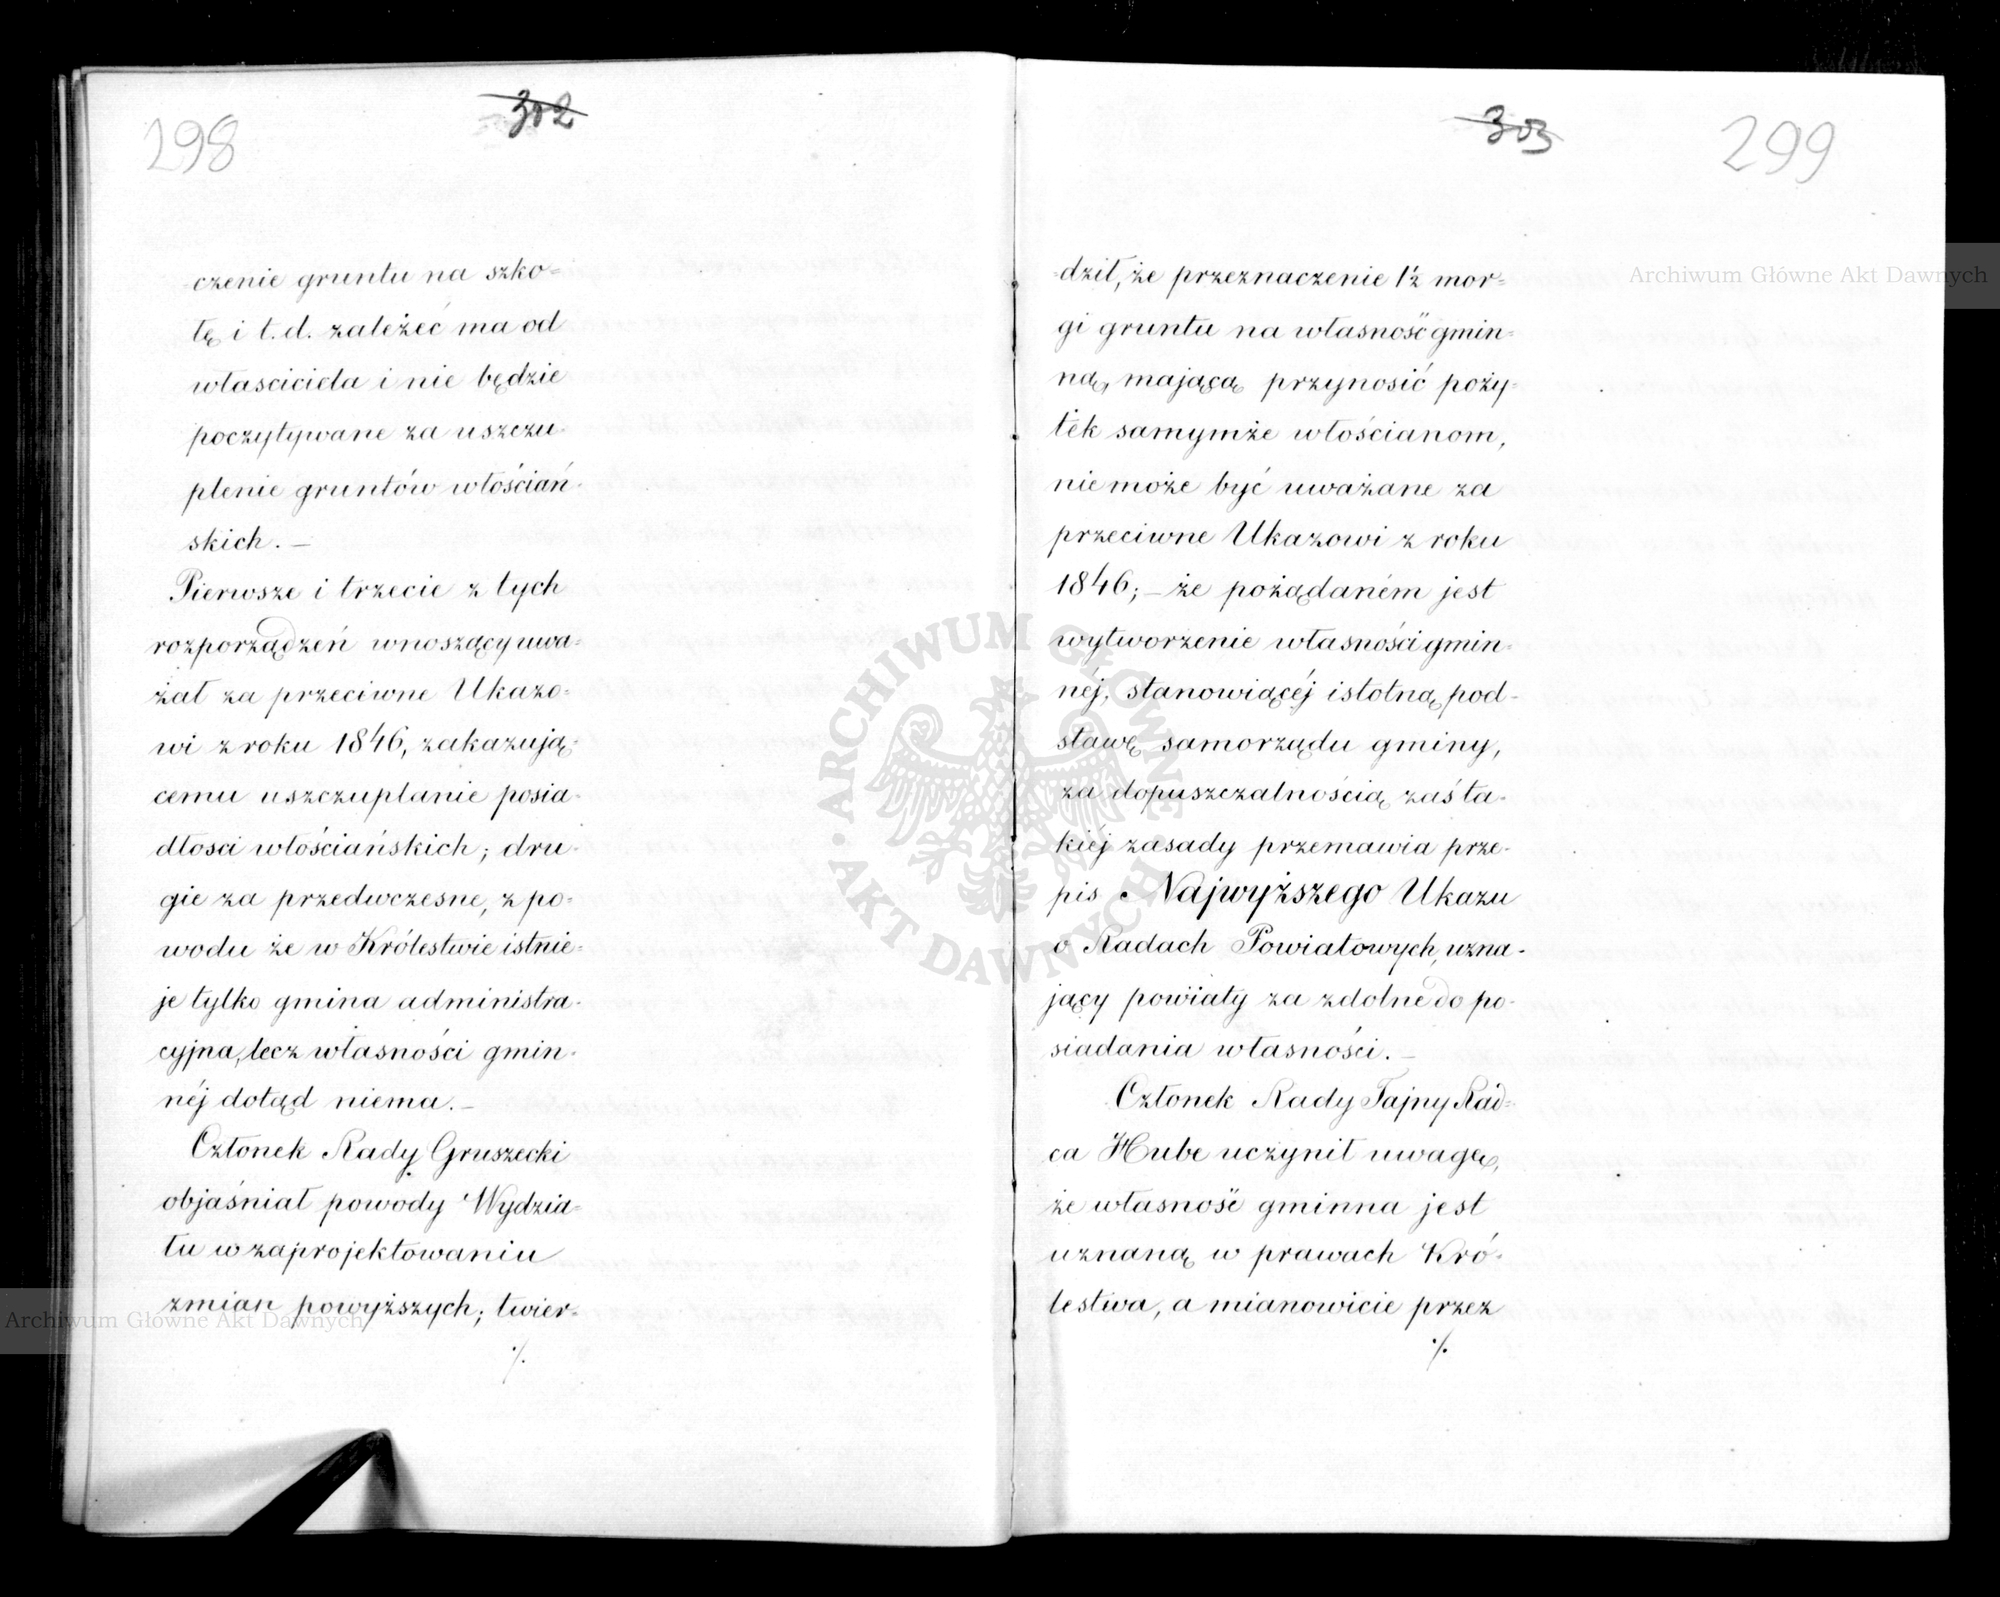 298
302
czenie gruntu na szko=
łę i t.d. zależeć ma od
własciciela i nie będzie
poczytywane za uszczu-
plenie gruntów włościań-
skich. —
Pierwsze i trzecie z tych
rozporządzeń wnoszący uwa-
żał za przeciwne Ukazo-
wi z roku 1846, zakazują-
cemu uszczuplanie posia-
dłosci włościańskich; dru-
gie za przedwczesne, z po-
wodu że w Królestwie istnie-
je tylko gmina administra-
cyjna, lecz własności gmin-
néj dotąd niema. —
Członek Rady Gruszecki
objaśniał powody Wydzia-
łu w zaprojektowaniu
zmian powyższych; twier-
./.
303
299
dził, że przeznaczenie 1½ mor=
gi gruntu na własność gmin-
ną, mającą przynosić poży-
tek samymże włościanom,
nie może być uważane za
przeciwne Ukazowi z roku
1846; — że pożądaném jest
wytworzenie własności gmin-
néj, stanowiącéj istotną pod-
stawę samorządu gminy,
za dopuszczalnością zaś ta-
kiéj zasady przemawia prze-
pis Najwyższego Ukazu
o Radach Powiatowych, uzna-
jący powiaty za zdolne do po-
siadania własności. —
Członek Rady Tajny Rad=
ca Hube uczynił uwagę,
że własność gminna jest
uznaną w prawach Kró-
lestwa, a mianowicie przez
./.
Archiwum Główne Akt Dawnych
ARCHIWUM GŁÓWNE · AKT DAWNYCH ·
Archiwum Główne Akt Dawnych